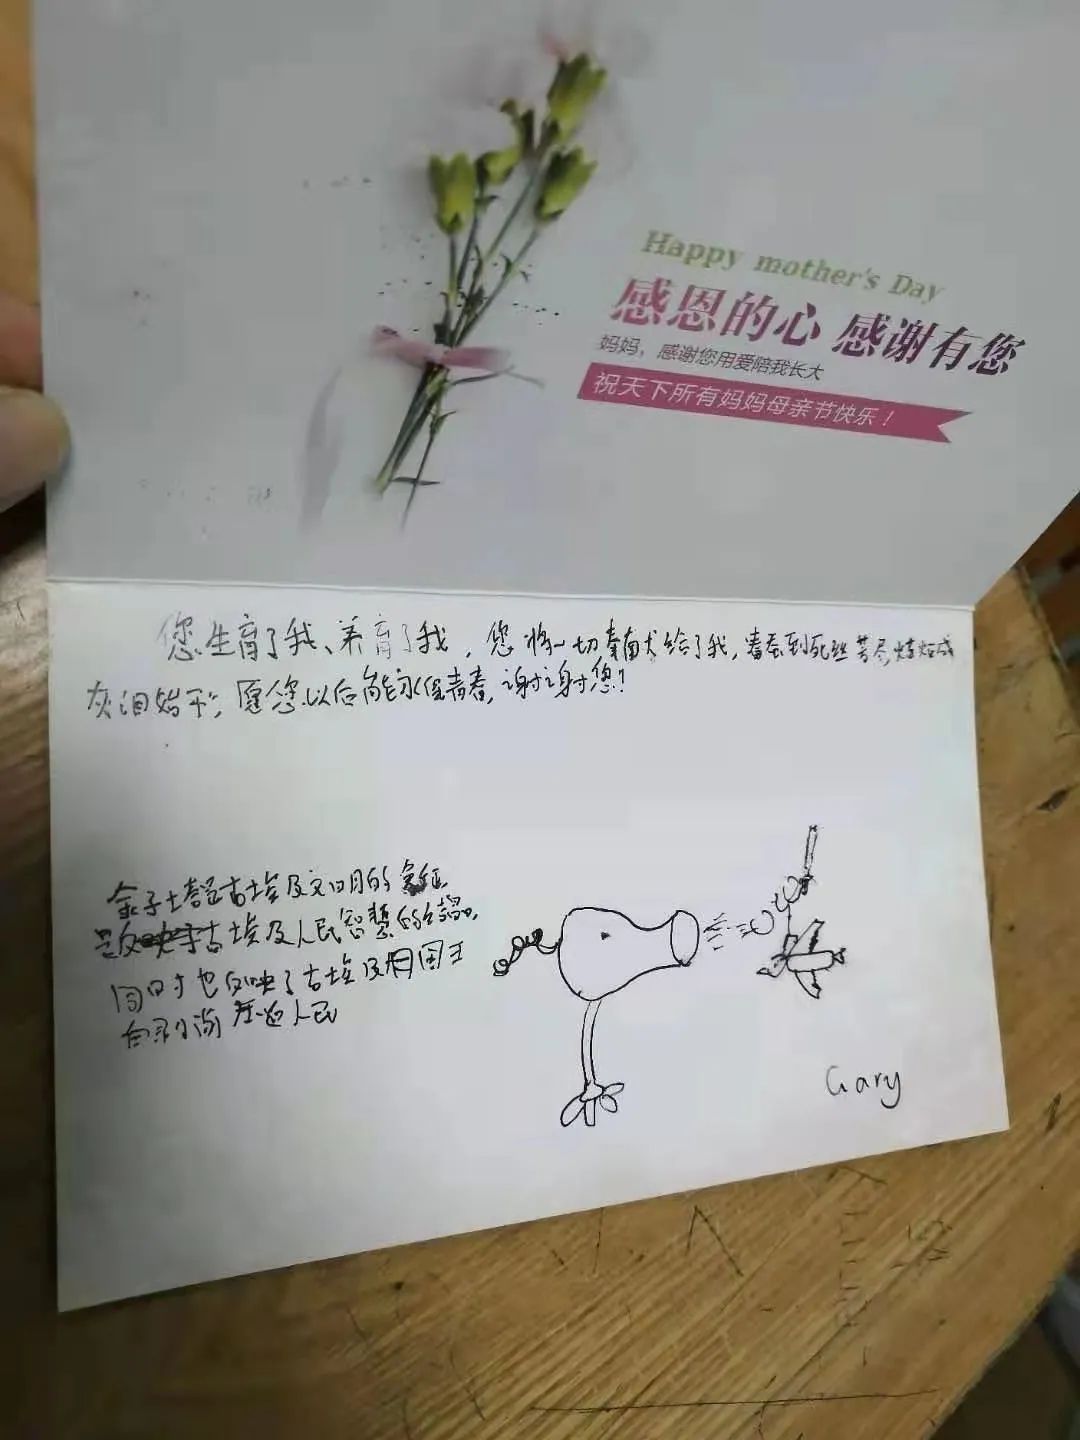 Happy mother's Day
感恩的心 感谢有您
妈妈，感谢您用爱陪我长大
祝天下所有妈妈母亲节快乐！
您生育了我、养育了我，您将一切奉献给了我，春蚕到死丝
灰泪始干，愿您以后能永保青春，谢谢您！
金子塔是古埃及文明的象征，
古埃及人民智慧的结晶，
同时也反映了古埃及国王
人民
Gary